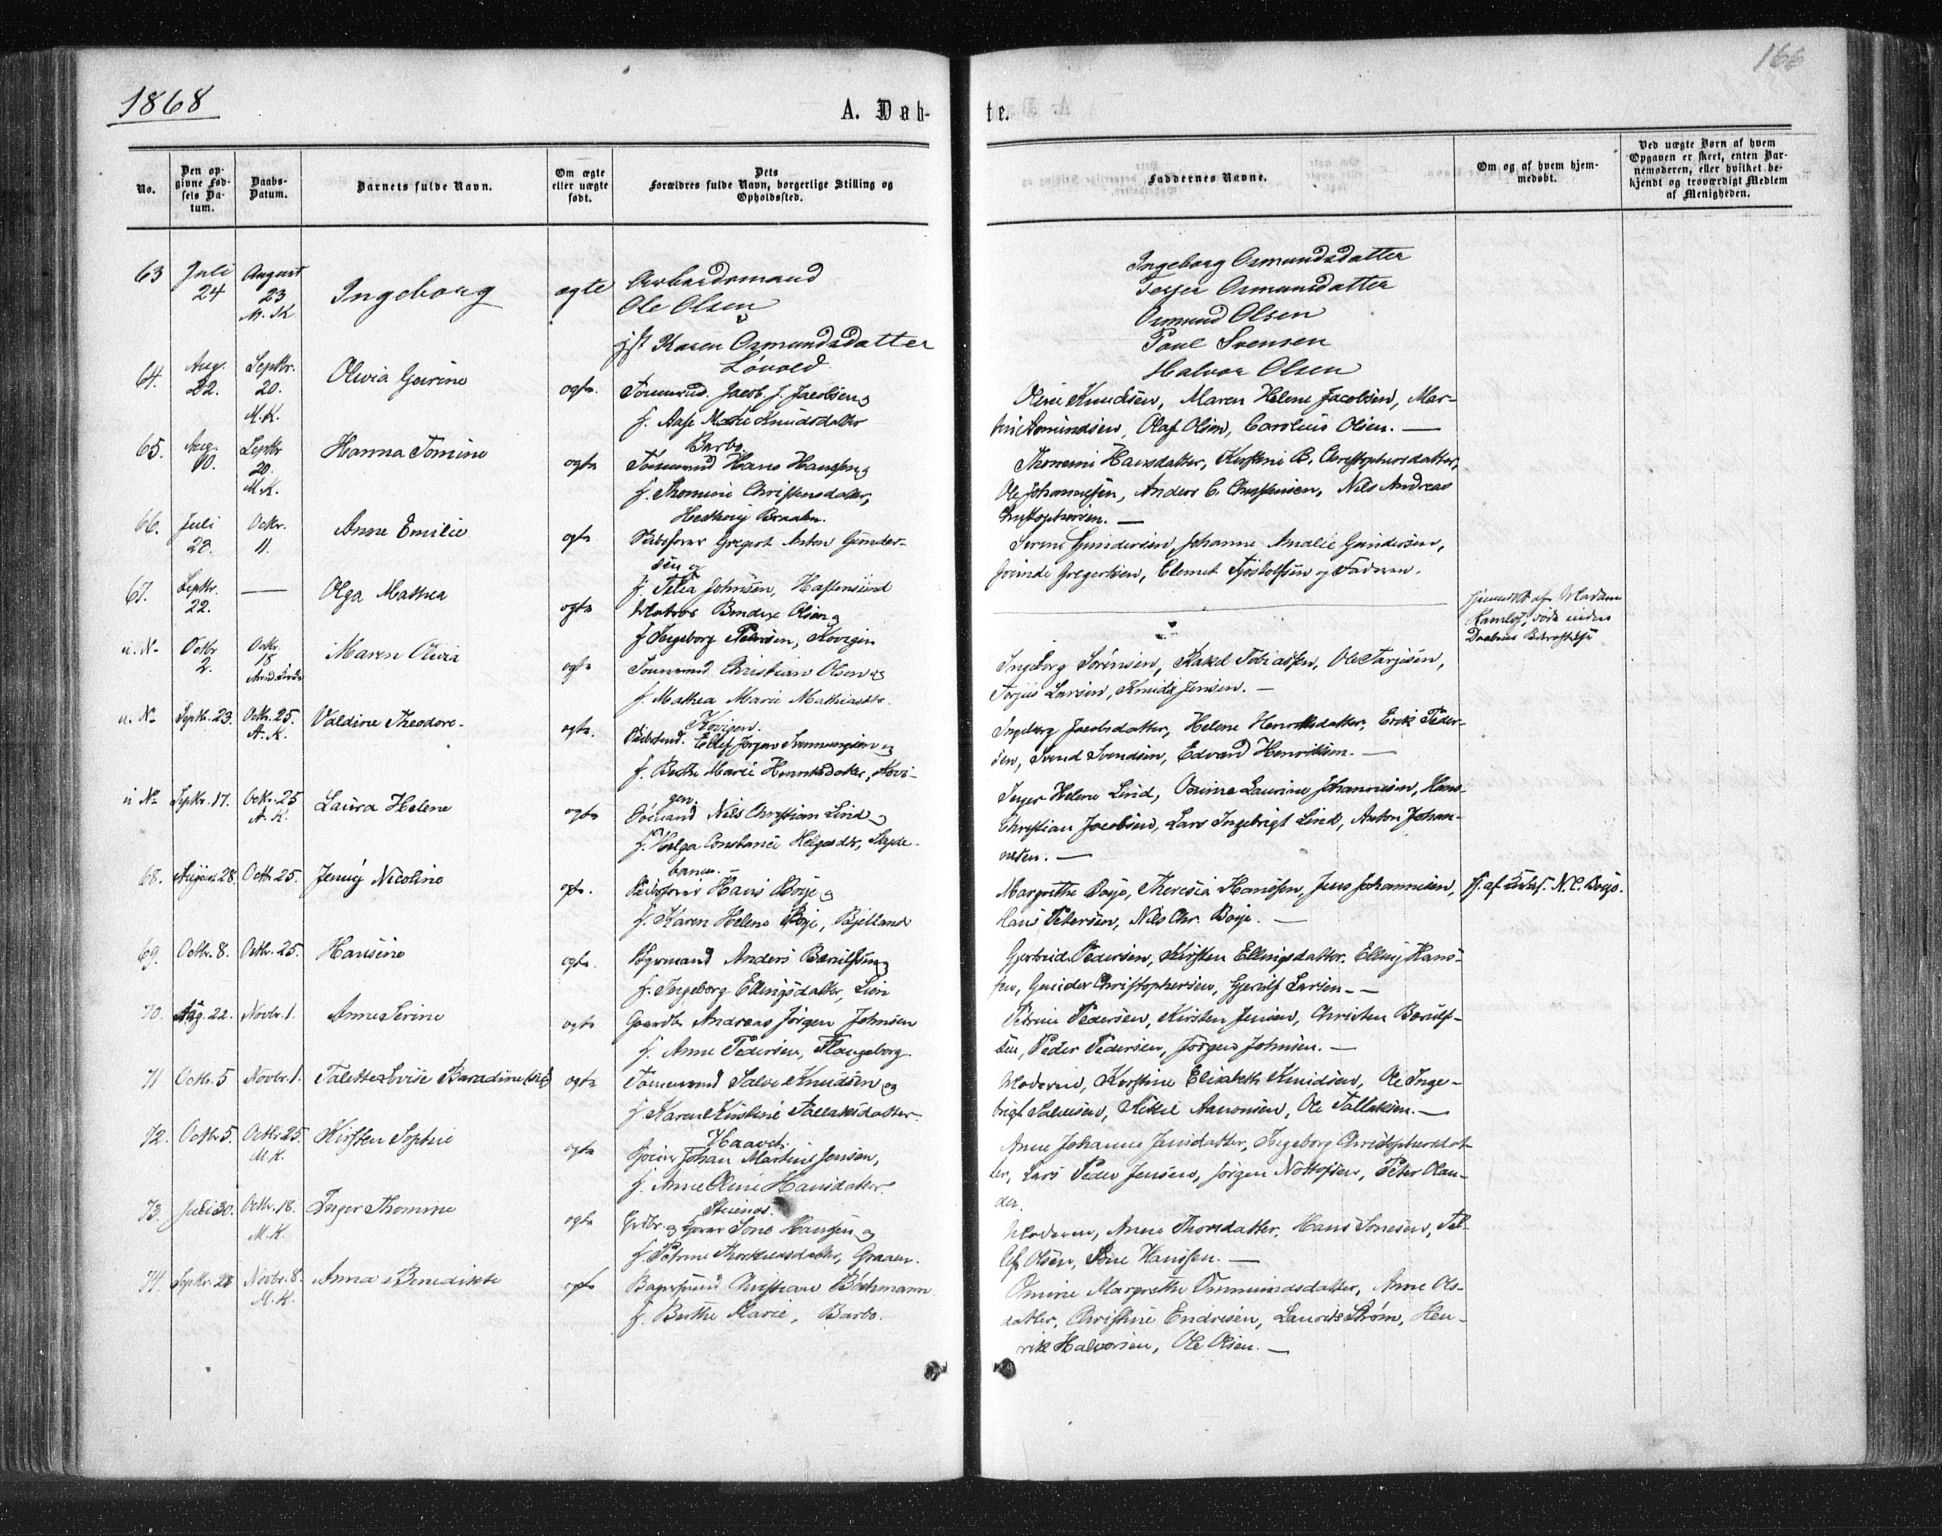 1868
A. Døb-
te.
166
No.
Den op-
givne Fød-
sels Da-
tum.
Daabs-
Datum.
Barnets fulde Navn.
Om ægte
eller uægte
født.
Dets
Forældres fulde Navn, borgerlige Stilling og
Opholdssted.
Faddernes Navne.
Om og af hvem hjem-
medøbt.
Ved uægte Børn af hvem
Opgaven er skeet, enten Bar-
nemoderen, eller hvilket be-
kjendt og troværdigt Medlem
af Menigheden.
63
Juli
24
August
23
M. K.
Ingeborg
ægte
Arbeidsmand
Ole Olsen
Karen Osmundsdatter
Løvold
Ingeborg Osmundsdatter
Osmundsdatter
Osmund Olsen
Poul Svensen
Halvor Olsen
64.
Aug.
22.
Septbr.
20.
M.K.
Olivia Geirine
ægte.
Tømmrmd. Jacob J. Jacobsen og
f. Aase Marie Knudsdatter
Barbo
Oline Knudsen, Maren Helene Jacobsen, Mar-
Osmundsen, Olaf Olsen, Carolius Olsen. —
65.
Aug.
10.
Septbr
20.
M.K.
Hanna Tomine
ægte
Tømmrmd Hans Hansen og
f. Thomine Christensdatter,
Braaten.
Thomine Hansdatter, Kirstine B. Christophersdatter,
Ole Johannesen, Anders C. Christensen, Nils Andreas
Christophersen. —
66.
Juli
28.
Octbr.
11.
Anne Emilie
ægte
Skibsfører Gregert Anton Gunder-
sen og
f. Telia Johnsen, Hastensund
Serene Gundersen, Johanne Amalie Gundersen,
Gregertsen, Clemet Tjostolfsen og Faderen.
67.
Septbr.
22.
—
Olga Mathea
ægte
Matros Bendix Olsen og
f. Ingeborg Petersen, Kovigen
hjemmedøbt af Madam
døde inden
Daabens Bekræftelse
u. No
Octbr
2.
Octbr.
18
Maren Olivia
ægte
Tømmrmd Christian Olsen og
f. Mathea Marie Mathiasdtr.
Kovigen.
Ingeborg Sørensen, Tobiassen, Ole Terjesen,
Larsen, Knud Jensen. —
u. No
Septbr. 23.
Octbr. 25.
A. K.
Valdine Theodore.
ægte.
Ellef Jørgen og
f. Berthe Marie Henriksdatter, Kovi-
gen.
Ingeborg Jacobsdatter, Helene Henriksdatter, Erik Peder-
sen, Svend Svendsen, Edvard Henriksen. —
u No
Septbr. 17.
Octbr. 25
A. K.
Laura Helene
ægte
Sømand Nils Christian Lind og
f. Helga Constance Helgesdtr, Skyde-
banen. —
Inger Helene Lind, Laurine Johannesen, Hans
Christian Jacobsen, Lars Ingebrigt Lind, Anton Johan-
nesen. —
68.
August 28.
Octbr. 25.
Jenny Nicoline
ægte.
Skibsfører Hans Boye og
f. Karen Helene Boye, Bjelland
Margrethe Boye, Theresia Hanssen, Jens Johannesen,
Hans Petersen, Nils Chr. Boye. —
N. C. Boye.
69.
Octbr. 8.
Octbr. 25.
Hansine
ægte.
Anders Berulfsen og
f. Ingeborg Ellingsdatter, Lien
Gjertrud Pedersen, Kirsten Ellingsdatter, Elling Hans-
sen, Gunder Christophersen, Gjerulf Larsen. —
70.
Aug. 22.
Novbr. 1.
Anne Serine
ægte
Gaardbr. Andreas Jørgen Johnsen
f. Anne Pedersen, Flangeborg
Petrine Pedersen, Kirsten Jensen, Christen Berulf-
sen, Peder Pedersen, Jørgen Johnsen. —
71
Octbr. 5
Novbr. 1.
Talette Lovise Baradine (sic)
ægte
Tømmrmd Salve Knudsen og
f. Karen Kirstine Tallaksdatter
Haavet.
Moderen, Kirstine Elisabeth Knudsen, Ole Inge-
brigt Salvesen, Mikkel Aanonsen, Ole Tallaksen. —
72.
Octbr 5.
Octbr. 25.
M.K.
Kirsten Sophie
ægte
Johan Martin Jensen,
f. Anne Oline Hansdatter
Steenas.
Anne Johanne Jensdatter, Ingeborg Christophersdat-
ter, Lars Peder Jensen, Jørgen Nottofsen, Peter Olan-
der.
73.
Juli 30.
Octbr. 18.
M.K.
Inger Thomine
ægte
Grdbr. og Garver Sone Hansen og
f. Petrine Thorkildsdatter, Graaen.
Moderen, Anne Thorsdatter, Hans Sonesen, Tel-
lef Olsen, Sone Hanssen. —
74.
Septbr. 28
Novbr. 8.
M.K.
Anna Benedikte
ægte
Bagersvend Christian Böckmann
f. Berthe Marie, Barbo.
Omine Margrethe Ommundsdatter, Anne Ols-
datter, Christine Endresen, Laurits Strøm, Hen-
rik Halvorsen, Ole Olsen. —